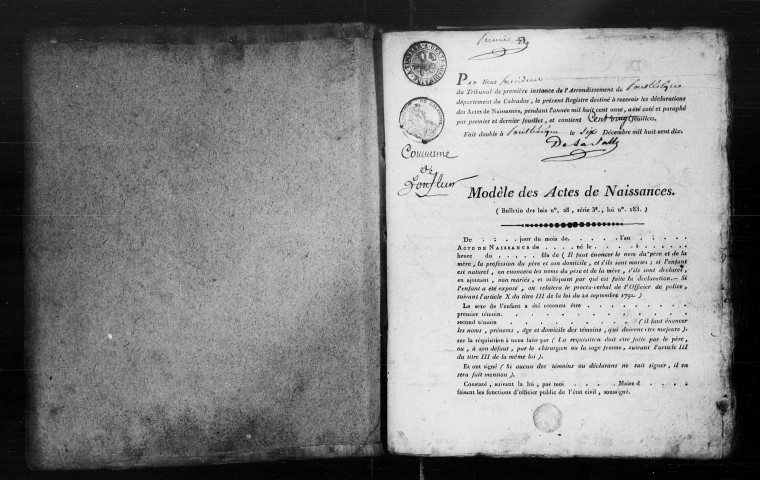 Premier
Par Nous Président
du Tribunal de première instance de l'Arrondissement de Pontlévêque
département du Calvados, le présent Registre destiné à recevoir les déclarations
des Actes de Naissances, pendant l'année mil huit cent onze, a été coté et paraphé
par premier et dernier feuillet, et contient Cent vingt feuillets.
Fait double à Pontlévêque le six Décembre mil huit cent dix.
Commune
de
Honfleur
Modèle des Actes de Naissances.
( Bulletin des lois n°. 28, série 3e., loi n°. 183. )
Du . . . jour du mois de. . . . . . l'an . . . .
ACTE DE NAISSANCE de . . . . . né le . . . . à . . . . . .
heure du . . . . . fils de ( Il faut énoncer le nom du père et de la
mère, la profession du père et son domicile, et s'ils sont mariés; si l'enfant
est naturel, on énoncera les noms du père et de la mère, s'ils sont déclarés,
en ajoutant, non mariés, et indiquant par qui est faite la déclaration. — Si
l'enfant a été exposé, on relatera le procès-verbal de l'Officier de police,
suivant l'article X du titre III de la loi du 20 septembre 1792. )
Le sexe de l'enfant a été reconnu être . . . . . . . . . .
premier témoin. . . . . . . . . . . . . . . . .
second témoin . . . . . . . . . . . . ( il faut énoncer
les noms, prénoms, âge et domicile des témoins, qui doivent être majeurs );
sur la réquisition à nous faite par ( La réquisition doit être faite par le père,
ou, à son défaut, par le chirurgien ou la sage femme, suivant l'article III
du titre III de la même loi ).
Et ont signé ( Si aucun des témoins ou déclarans ne sait signer, il en
sera fait mention ).
Constaté, suivant la loi, par moi . . . . . Maire d . . . .
faisant les fonctions d'officier public de l'état civil, soussigné.